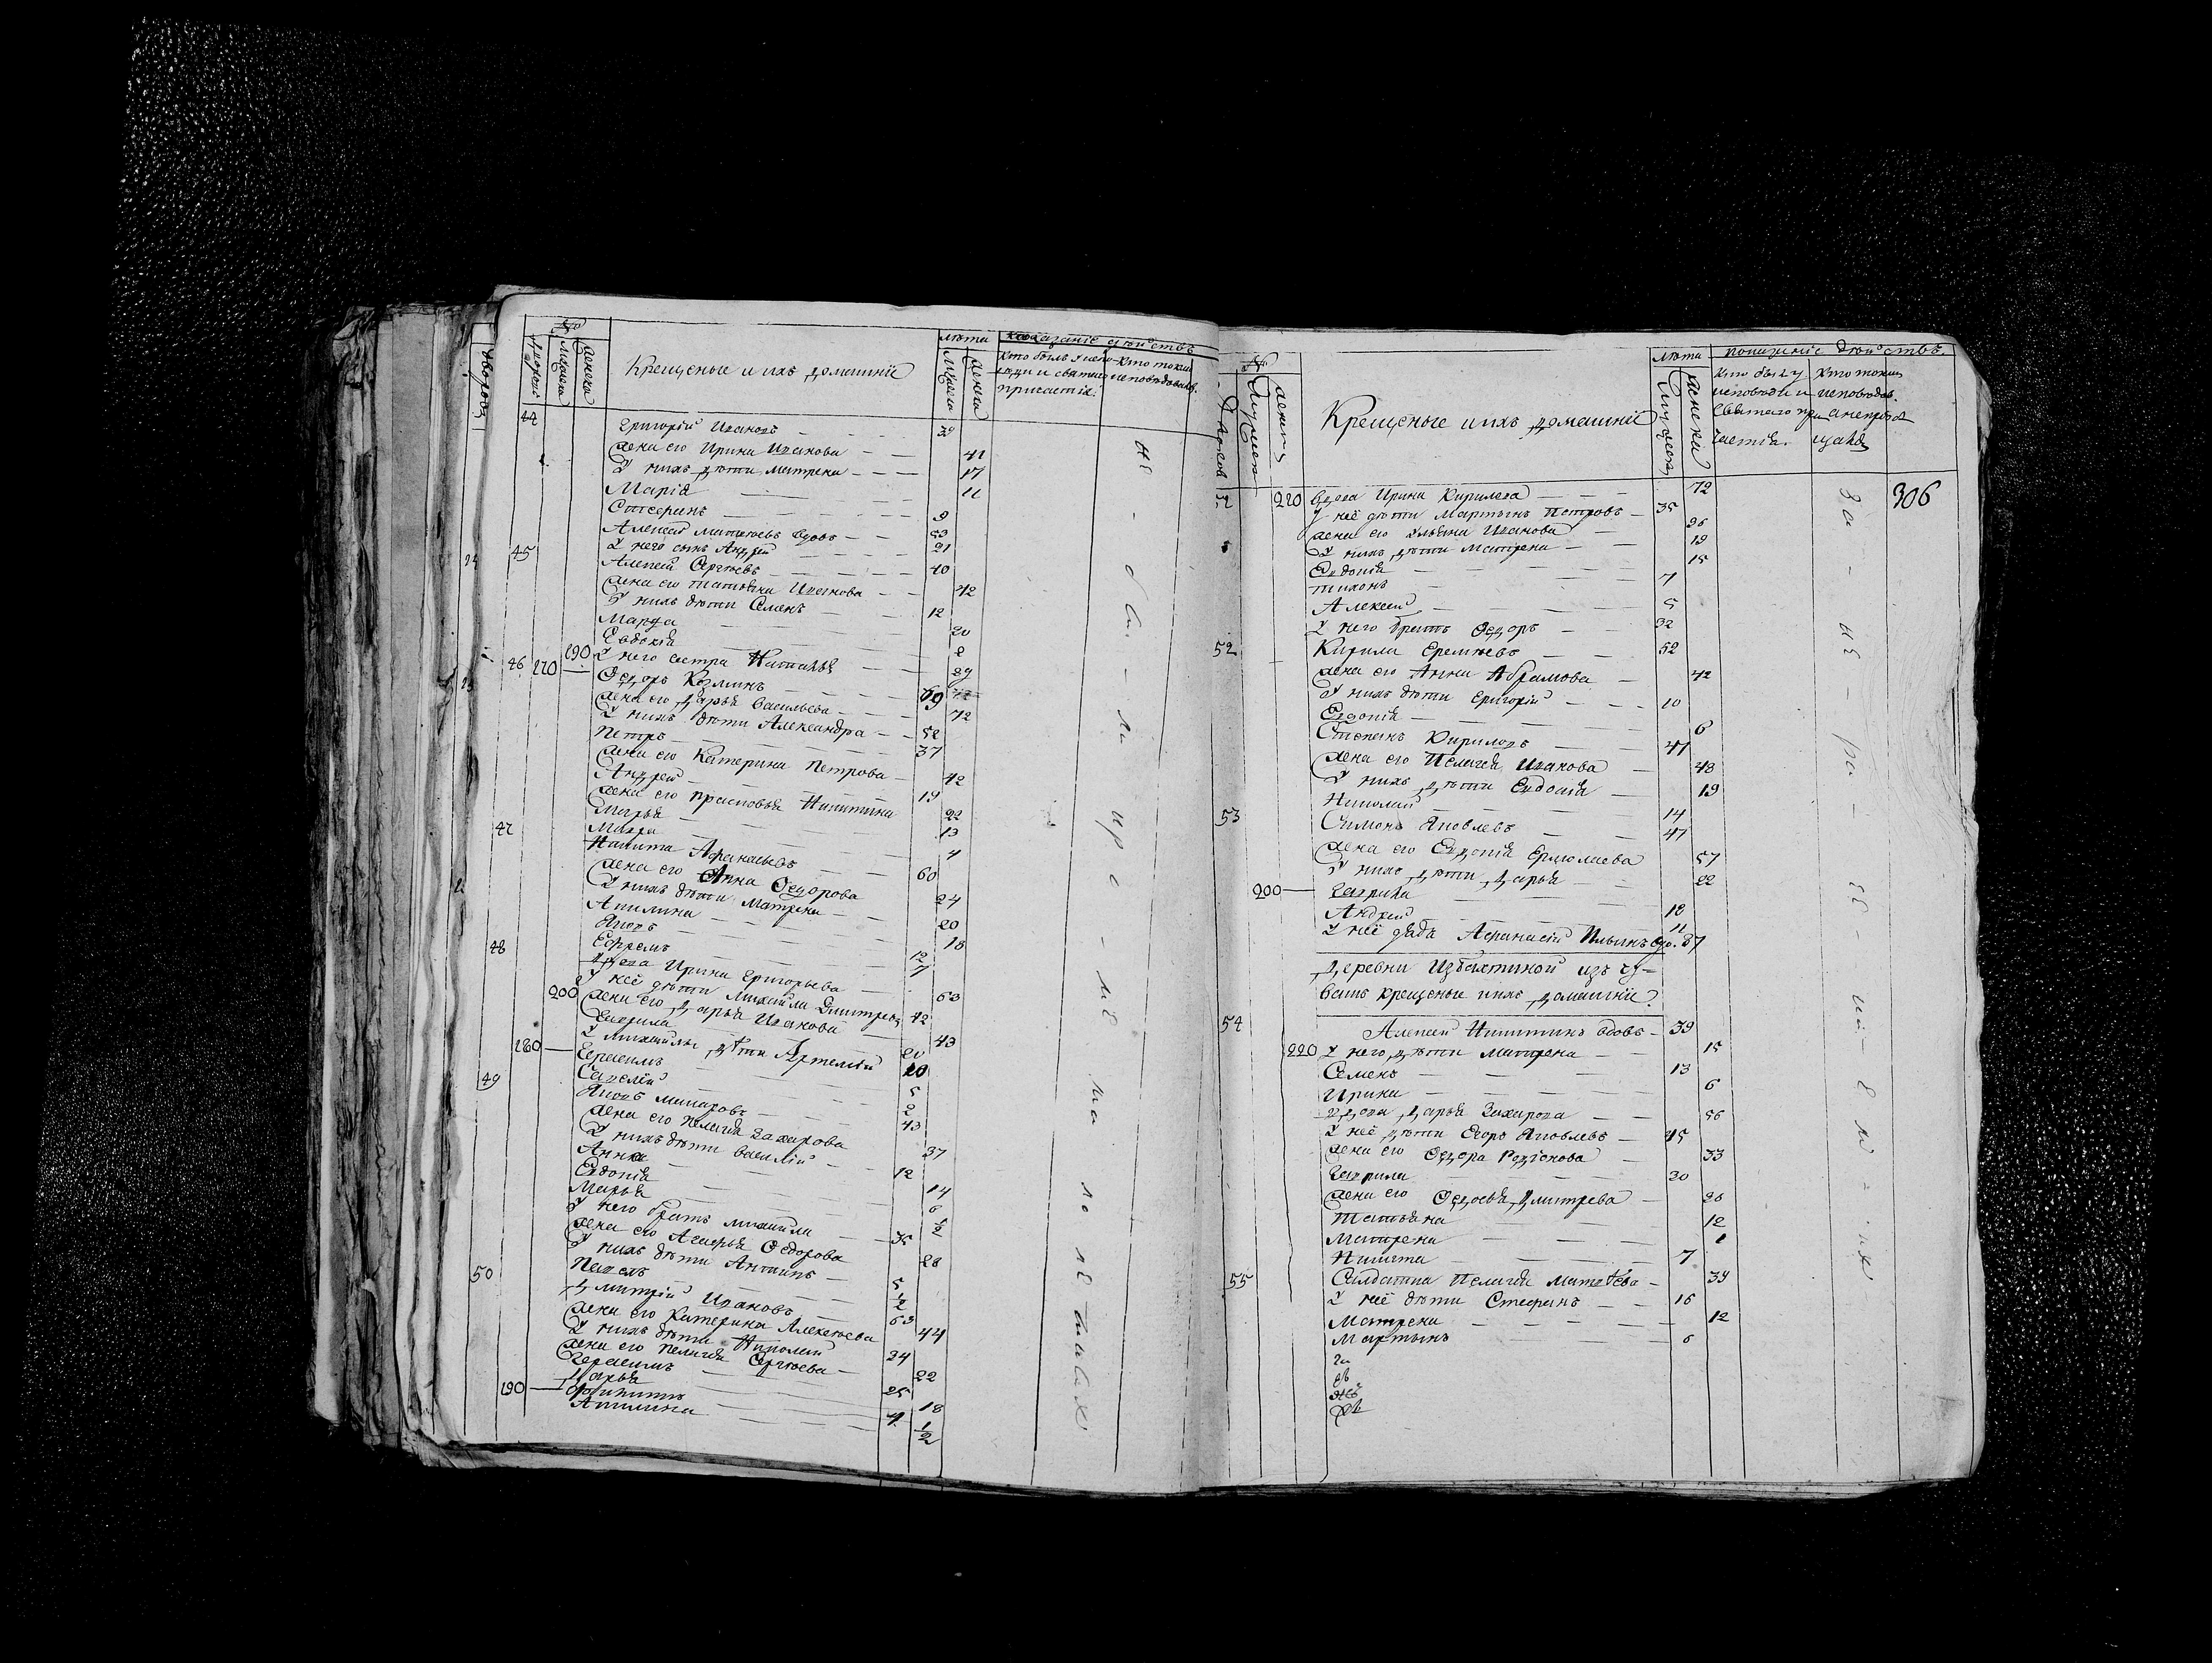 №
дворовъ
мужеска
женска
Крещеные и ихъ домашніе
лѣта
мужеска
женска
показаніе дѣйствъ
Кто былъ у испо-
веди и святаго
причастія.
Кто токмо
исповѣдовался.
44 Григорій Ивановъ 39
жена его Ирина Иванова 41
У нихъ дѣти Матрена 17
Марія 11
Стефанъ 9
Алексей Матвеевъ вдовъ 53
У него сынъ Андрей 21
45 Алексей Сергѣевъ 40
жена его Татьяна Иванова 42
У нихъ дѣти Семенъ 12
Марфа 20
Евдокія 8
190 У него сестра Наталья 29
46 170 Ѳедоръ Козминъ 69
жена его Дарья Васильева 72
У нихъ дѣти Александра 52
Петръ 37
жена его Катерина Петрова 42
Андрей 19
жена его Прасковья Никитина 22
Марья 13
Мавра 4
47 Никита Афанасьевъ 60
жена его Анна Ѳедорова 24
У нихъ дѣти Матрена 20
Акилина 18
Яковъ 12
Ефремъ 7
48 Вдова Ирина Григорьева 63
У неё дѣти Михаила Дмитревъ 42
200 жена его Дарья Иванова 43
Гаврила 20
У Михаилы дѣти Артемій 10
180 Герасимъ 5
Савелій 2
49 Яковъ Макаровъ 43
жена его Пелагія Захарова 37
У нихъ дѣти Василій 12
Анна 14
Евдокія 6
Марья 1/2
У него братъ Михаила 35
жена его Агафья Ѳедорова 28
У нихъ дѣти Антипъ 5
Павелъ 1/2
50 Дмитрій Ивановъ 63
жена его Катерина Алексѣева 44
У нихъ дѣти Николай 24
жена его Пелагія Сергѣева 22
Герасимъ 25
Дарья 18
190 Филиппъ 4
Акилина 1/2
№
женска
Крещеные ихъ домашніе
лѣта
женска
показаніе дѣйствъ.
Кто былъ у
исповѣди и
святаго при-
частія.
Кто токмо
исповѣдов.
а не пріоб
щался
306
52 210 Вдова Ирина Кирилева 72
У неё дѣти Мартынъ Петровъ 35
жена его Ульяна Иванова 36
У нихъ дѣти Матрена 19
Евдокія 15
Тихонъ 7
Алексей 5
У него братъ Ѳедоръ 32
52 Кирила Еремѣевъ 52
жена его Анна Абрамова 42
У нихъ дѣти Григорій 10
Евдокія 6
Степанъ Кириловъ 47
жена его Пелагія Иванова 48
У нихъ дѣти Евдокія 19
Николай 14
53 Симонъ Яковлевъ 47
жена его Евдокія Ермолаева 57
У нихъ дѣти Дарья 22
200 Гаврила 18
Андрей 11
У неё дядя Афанасій Ильинъ вдо. 87
Деревни Избахтиной изъ чу-
вашъ крещеные ихъ домашніе
54 Алексей Никитинъ вдовъ 39
220 У него дѣти Матрена 15
Семенъ 13
Ирина 6
Вдова Дарья Захарова 56
У неё дѣти Егоръ Яковлевъ 45
жена его Ѳедора Родіонова 33
Гаврила 30
жена его Ѳедосья Дмитрева 26
Татьяна 12
Матрена 1
Никита 7
55 Салдатка Пелагія Матвѣева 39
У неё дѣти Стефанъ 16
Матрена 12
Мартынъ 6